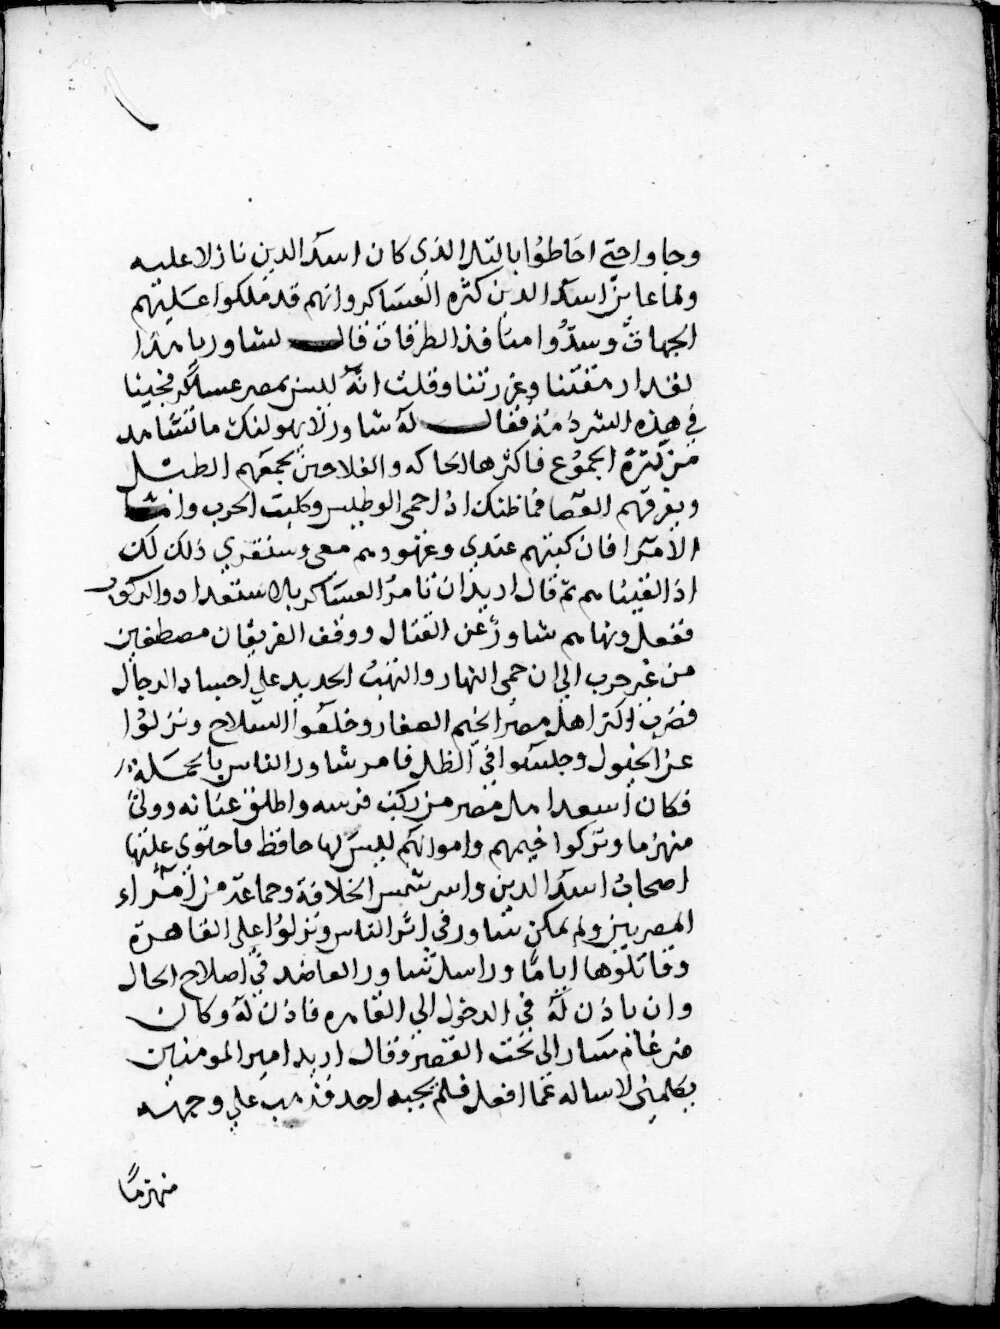 وجاوا حتي احاطوا بالتل الذي كان اسد الدين نازلا عليه
ولما عاين اسد الدين كثره العساكر وانهم قد ملكوا عليهم
الجهات وسدّوا منافذ الطرقات قال لشاور يا هذا
لقد ارهقتنا وغررتنا وقلت انه ليس بمصر عساكر فجينا
في هذه الشرذمة فقال له شاور لا يهولنك ما تشاهد
من كثرة الجموع فاكثرها الحاكه والفلاحين يجمعهم الطبل
ويفرقهم العصا فما ظنك اذا حمى الوطيس وكلبت الحرب واما
الامرا فان كتبهم عندي وعهودهم معي وسترى ذلك لك
اذا لقيناهم ثم قال اريد ان تامر العساكر بالاستعداد والركوب
ففعل ونهاهم شاور عن القتال ووقف الفريقان مصطفين
من غير حرب الي ان حمى النهار والتهب الحديد علي اجساد الرجال
فضرب اكثر اهل مصر الخيم الصغار وخلعوا السلاح ونزلوا
عن الخيول وجلسوا في الظل فامر شاور الناس بالحملة
فكان اسعد اهل مصر من ركب فرسه واطلق عنانه وولى
منهزما وتركوا خيمهم واموالهم ليس لها حافظ فاحتوى عليها
اصحاب اسد الدين واسر شمس الخلافة وجماعة من امراء
المصريين ولم يمكن شاور في اثر الناس ونزلوا على القاهرة
وقاتلوها اياما وراسل شاور العاضد في اصلاح الحال
وان ياذن له في الدخول الي القاهره فاذن له وكان
ضرغام سار الى تحت القصر وقال اريد امير المومنين
يكلمني لاساله عما افعل فلم يجبه احد فذهب علي وجهه
منهزما